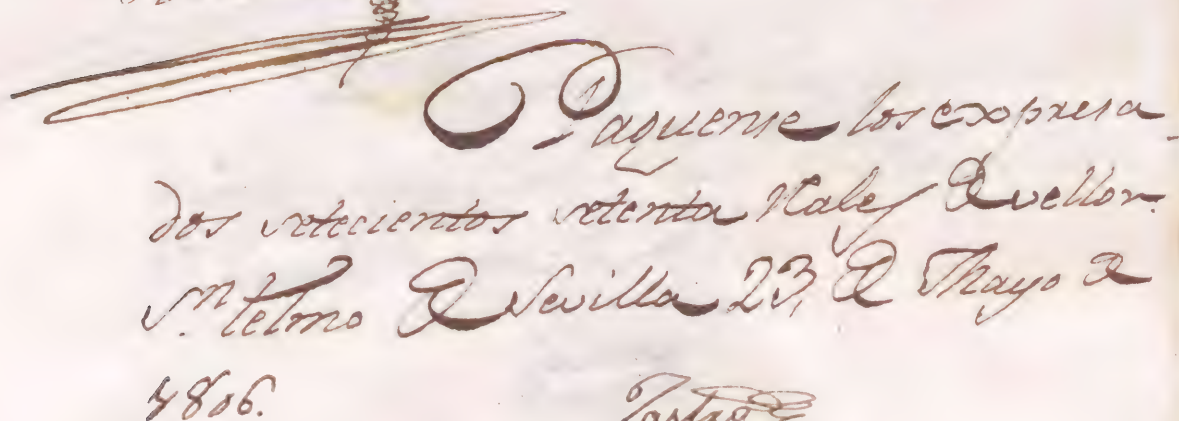 Paguense los expresa-
dos setecientos setenta Rales de vellon.
Sn. Telmo de Sevilla 23, de Mayo de
1806.